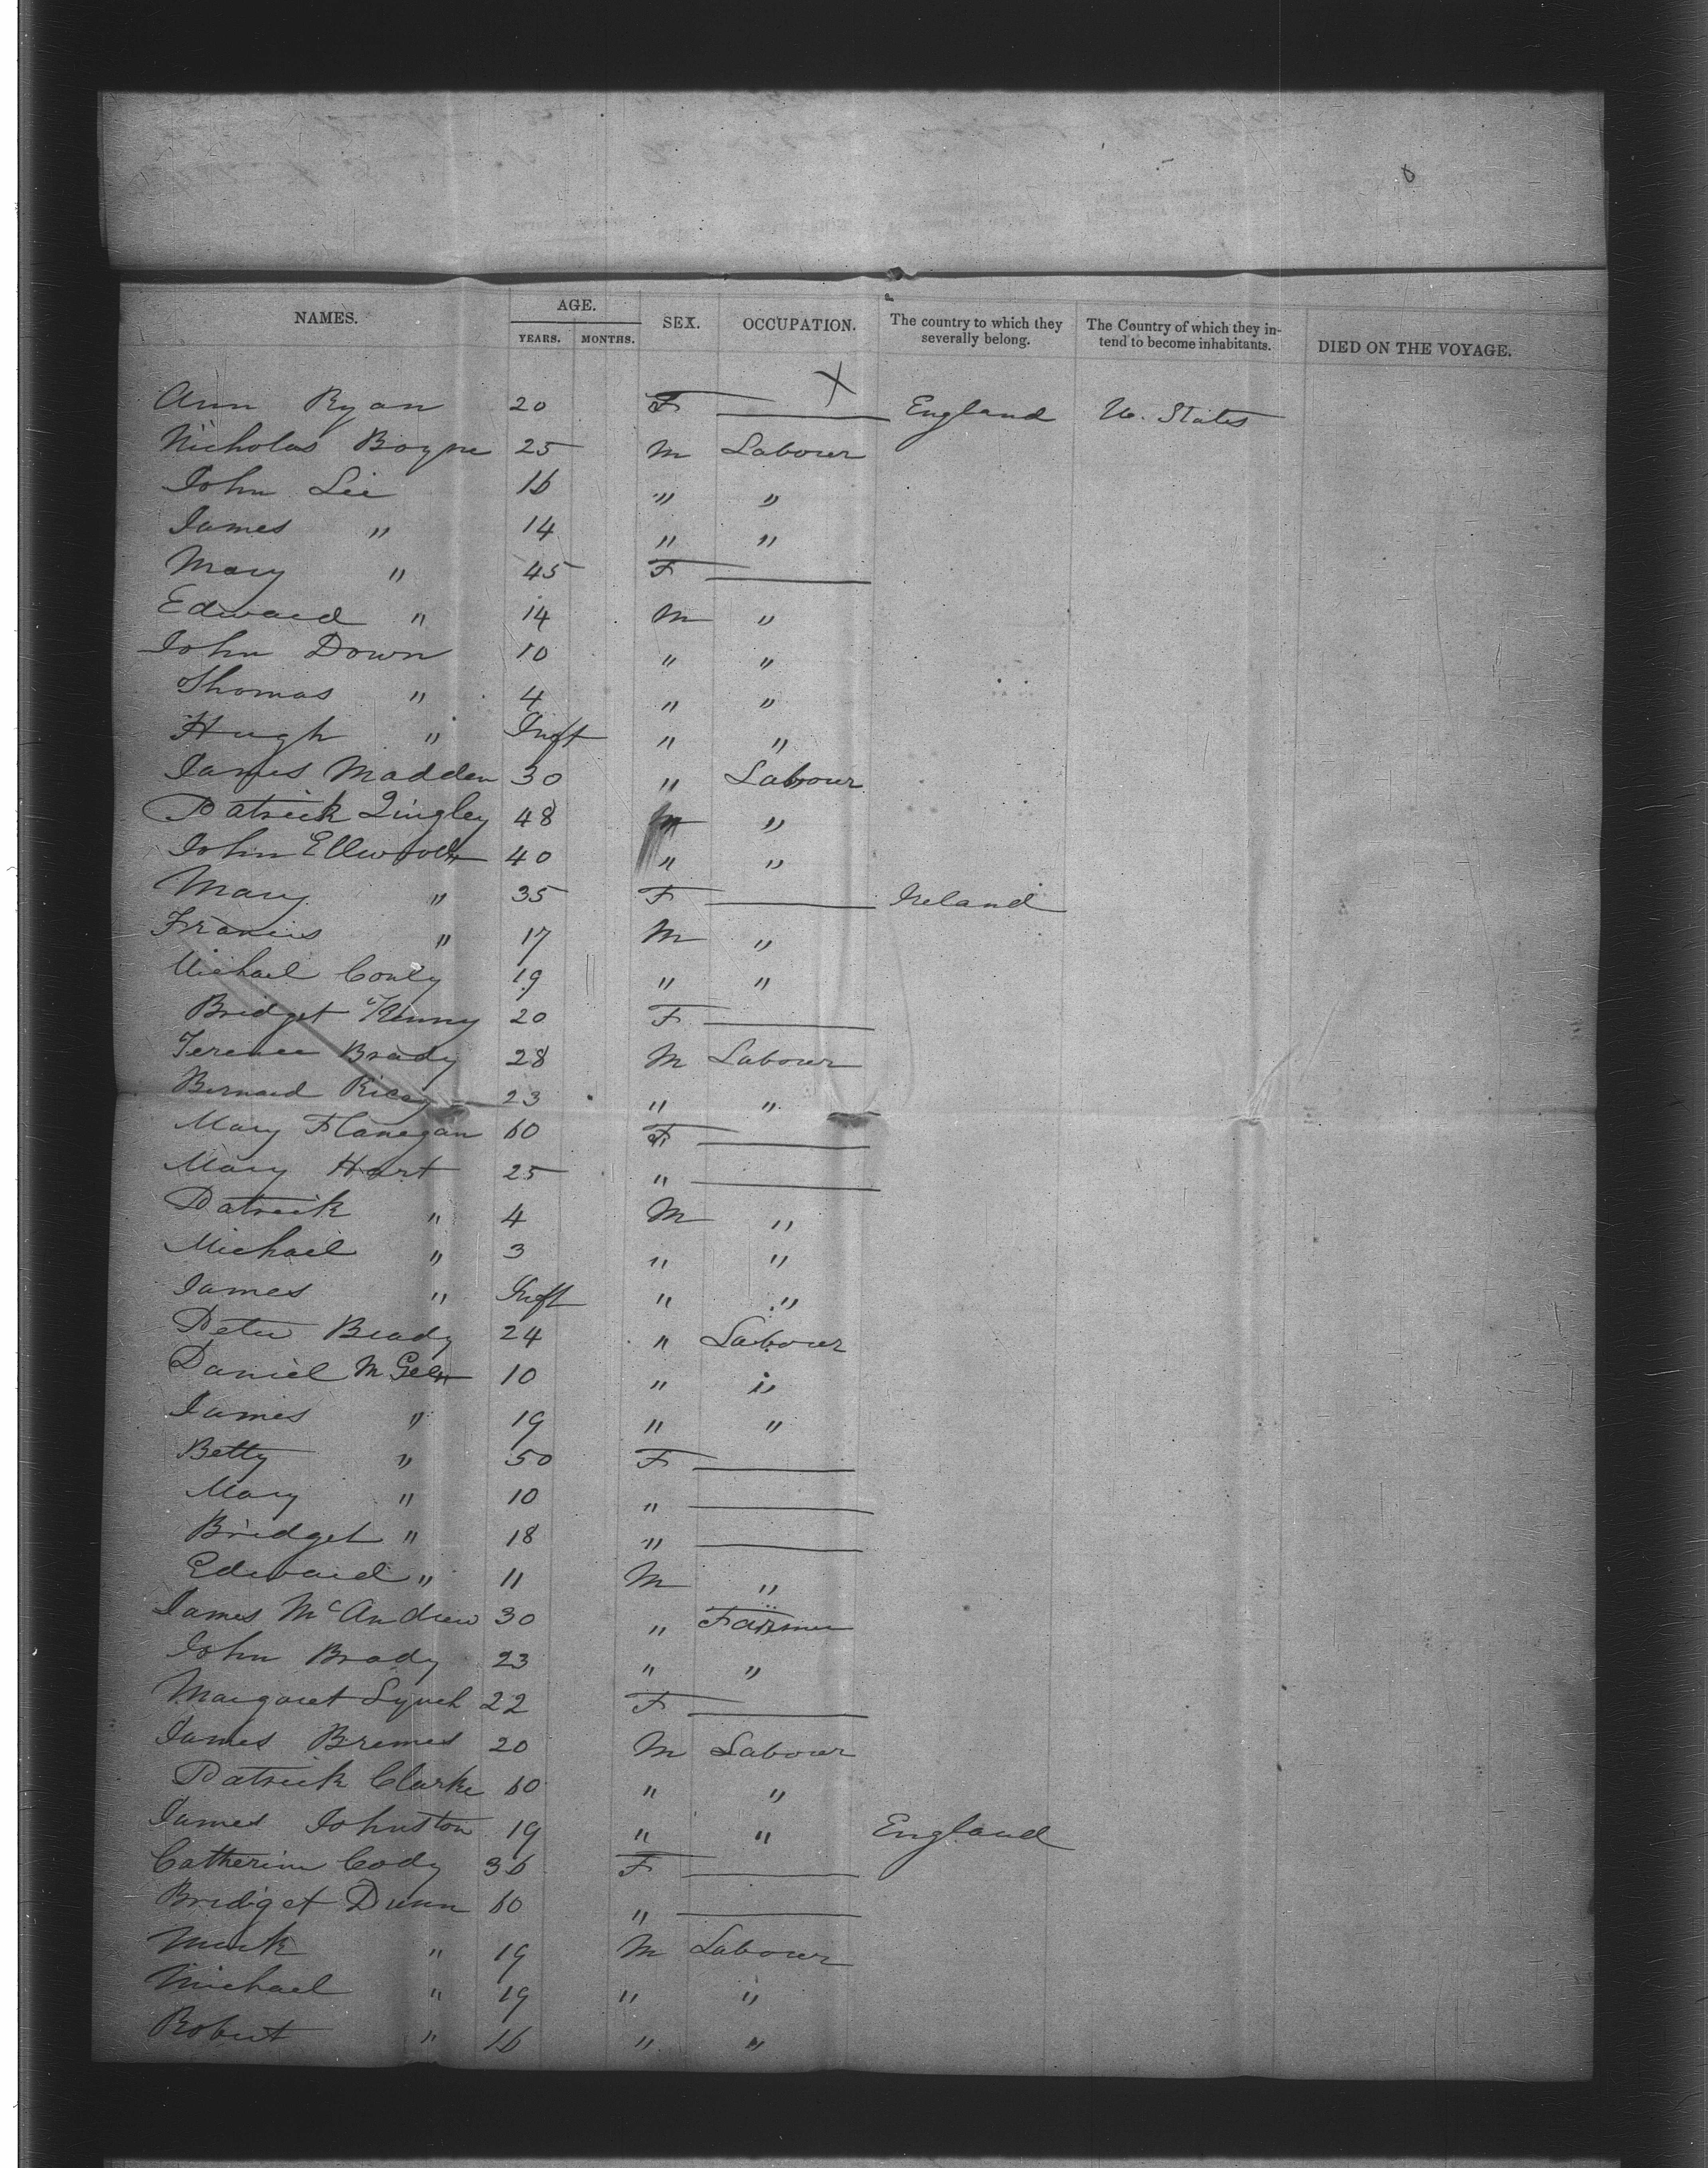 NAMES. AGE. SEX. OCCUPATION. The country to which they severally belong. The Country of which they in-tend to become inhabitants. DIED ON THE VOYAGE.
YEARS. MONTHS.
Ann Ryan 20 F — England U. States
Nicholas Boyne 25 M Labourer
John Lee 16 " "
James " 14 " "
Mary " 45 F —
Edward " 14 M "
John Down 10 " "
Thomas " 4 " "
Hugh " Inft " "
James Madden 30 " Labour
Patrick Qingley 48 M "
John Ellwood 40 " "
Mary " 35 F — Ireland
Francis " 17 M "
Michael Conly 19 " "
Bridget Kenny 20 F —
Terence Brady 28 M Labour
Bernard 23 " "
Mary Flanegan 60 F —
Mary Hart 25 " —
Patrick " 4 M "
Michael " 3 " "
James " Inft " "
Peter Brady 24 " Labour
Daniel 10 " "
James " 19 " "
Betty " 50 F —
Mary " 10 " —
Bridget " 18 " —
Edward " 11 M "
James McAndrew 30 " Farmer
John Brady 23 " "
Margaret Lynch 22 F —
James 20 M Labour
Patrick Clarke 60 " "
James Johnston 19 " " England
Catherine Cody 36 F —
Bridget Dunn 60 " —
Mark " 19 M Labour
Michael " 19 " "
Robert " 16 " "